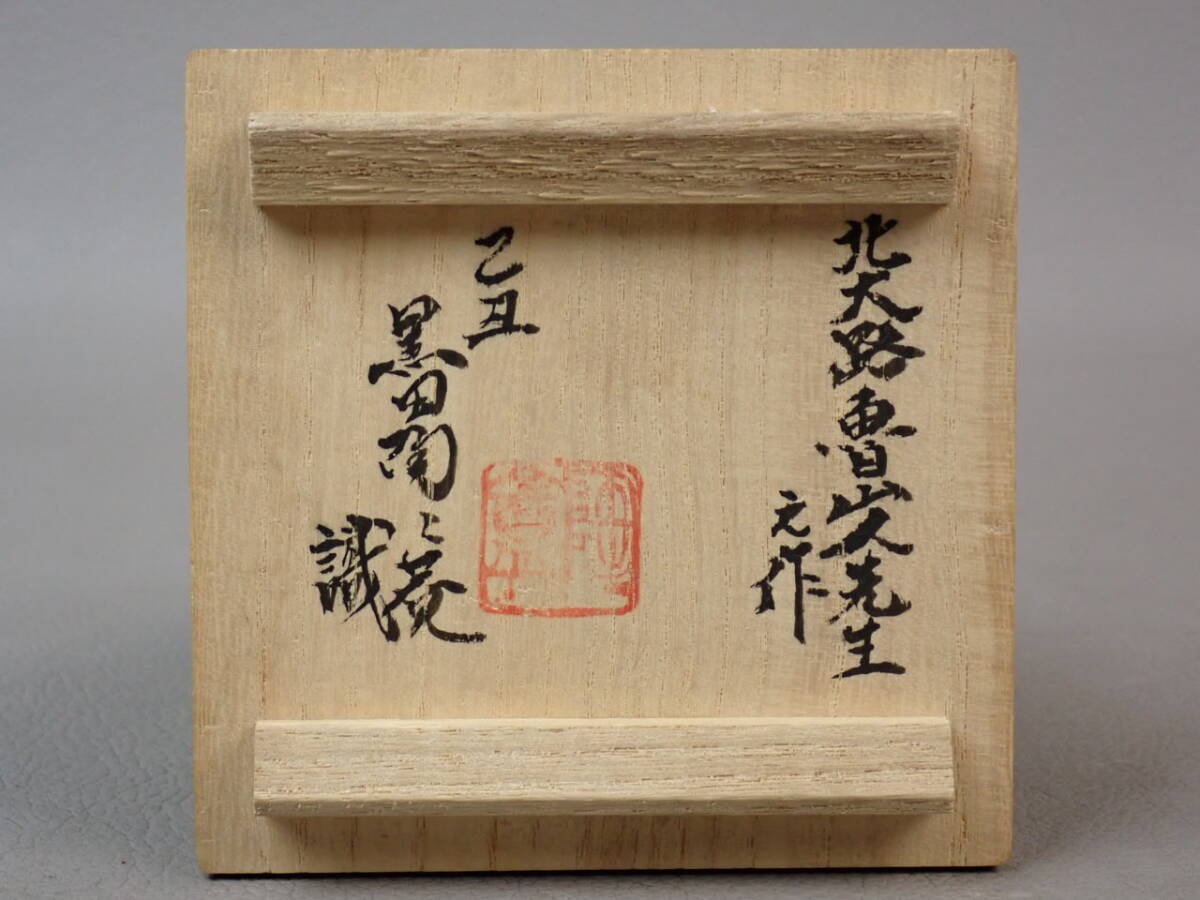 北大路魯山人先生
之作
己丑
黒田陶々菴
識